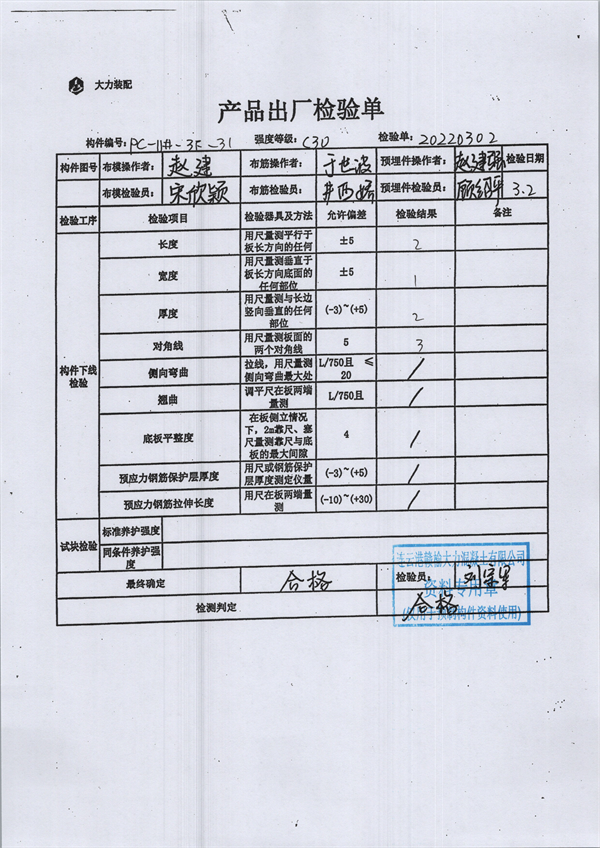 大力装配
产品出厂检验单
构件编号: PC-11#-3F-31 强度等级: C30 检验单: 20220302
构件图号 布模操作者: 赵建 布筋操作者: 于世波 预埋件操作者: 赵建 检验日期
布模检验员: 宋欣颖 布筋检验员: 预埋件检验员: 3.2
检验工序 检验项目 检验器具及方法 允许偏差 检验结果 备注
构件下线检验
长度 用尺量测平行于板长方向的任何 ±5 2
宽度 用尺量测垂直于板长方向底面的任何部位 ±5 1
厚度 用尺量测与长边竖向垂直的任何部位 (-3)~(+5) 2
对角线 用尺量测板面的两个对角线 5 3
侧向弯曲 拉线，用尺量测侧向弯曲最大处 L/750且 ≤20 /
翘曲 调平尺在板两端量测 L/750且 /
底板平整度 在板侧立情况下，2m靠尺、塞尺量测靠尺与底板的最大间隙 4 /
预应力钢筋保护层厚度 用尺或钢筋保护层厚度测定仪量 (-3)~(+5) /
预应力钢筋拉伸长度 用尺在板两端量测 (-10)~(+30) /
试块检验 标准养护强度
同条件养护强度
最终确定 合格 检验员:
检测判定 合格
连云港赣榆大力混凝土有限公司
资料专用章
(仅用于预制构件资料使用)